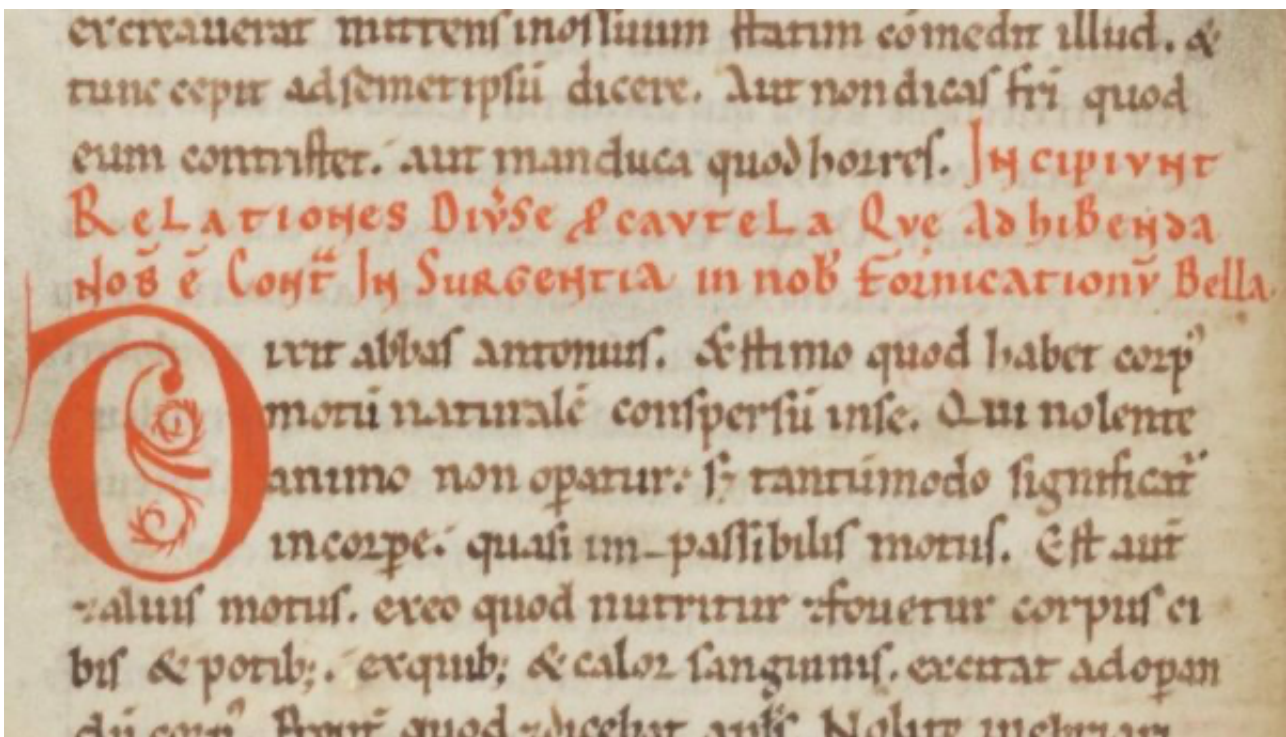 excreauerat mittens inossuum statim cómedit illud. &
tunc cepit adsémetipsū dicere. Aut non dicas fri quod
eum contristet. aut manduca quod horres. Incipiunt
Relationes Diuˀse & cautela Que adhibenda
nob̄ ē Cont̄ Insurgentia in nob̄ Fornicationū Bella.
Dixit abbas antonius. Æstimo quod habet corpˀ
motū naturalē conspersū inse. Qui nolente
animo non opatur. sꝫ tantūmodo significat
incorpe. quasi im-passibilis motus. Est aut̄
⁊alius motus. exeo quod nutritur ⁊fouetur corpus ci
bis & potibꝫ. exquibꝫ & calor sanguinis. excitat adopan
dū corpˀ. quod ⁊dicebat Nolite inebriari